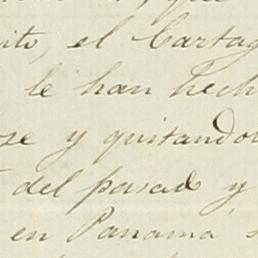 ito, el Cartag
le han hech
se y quitandol
del pasad y
en Panamá s